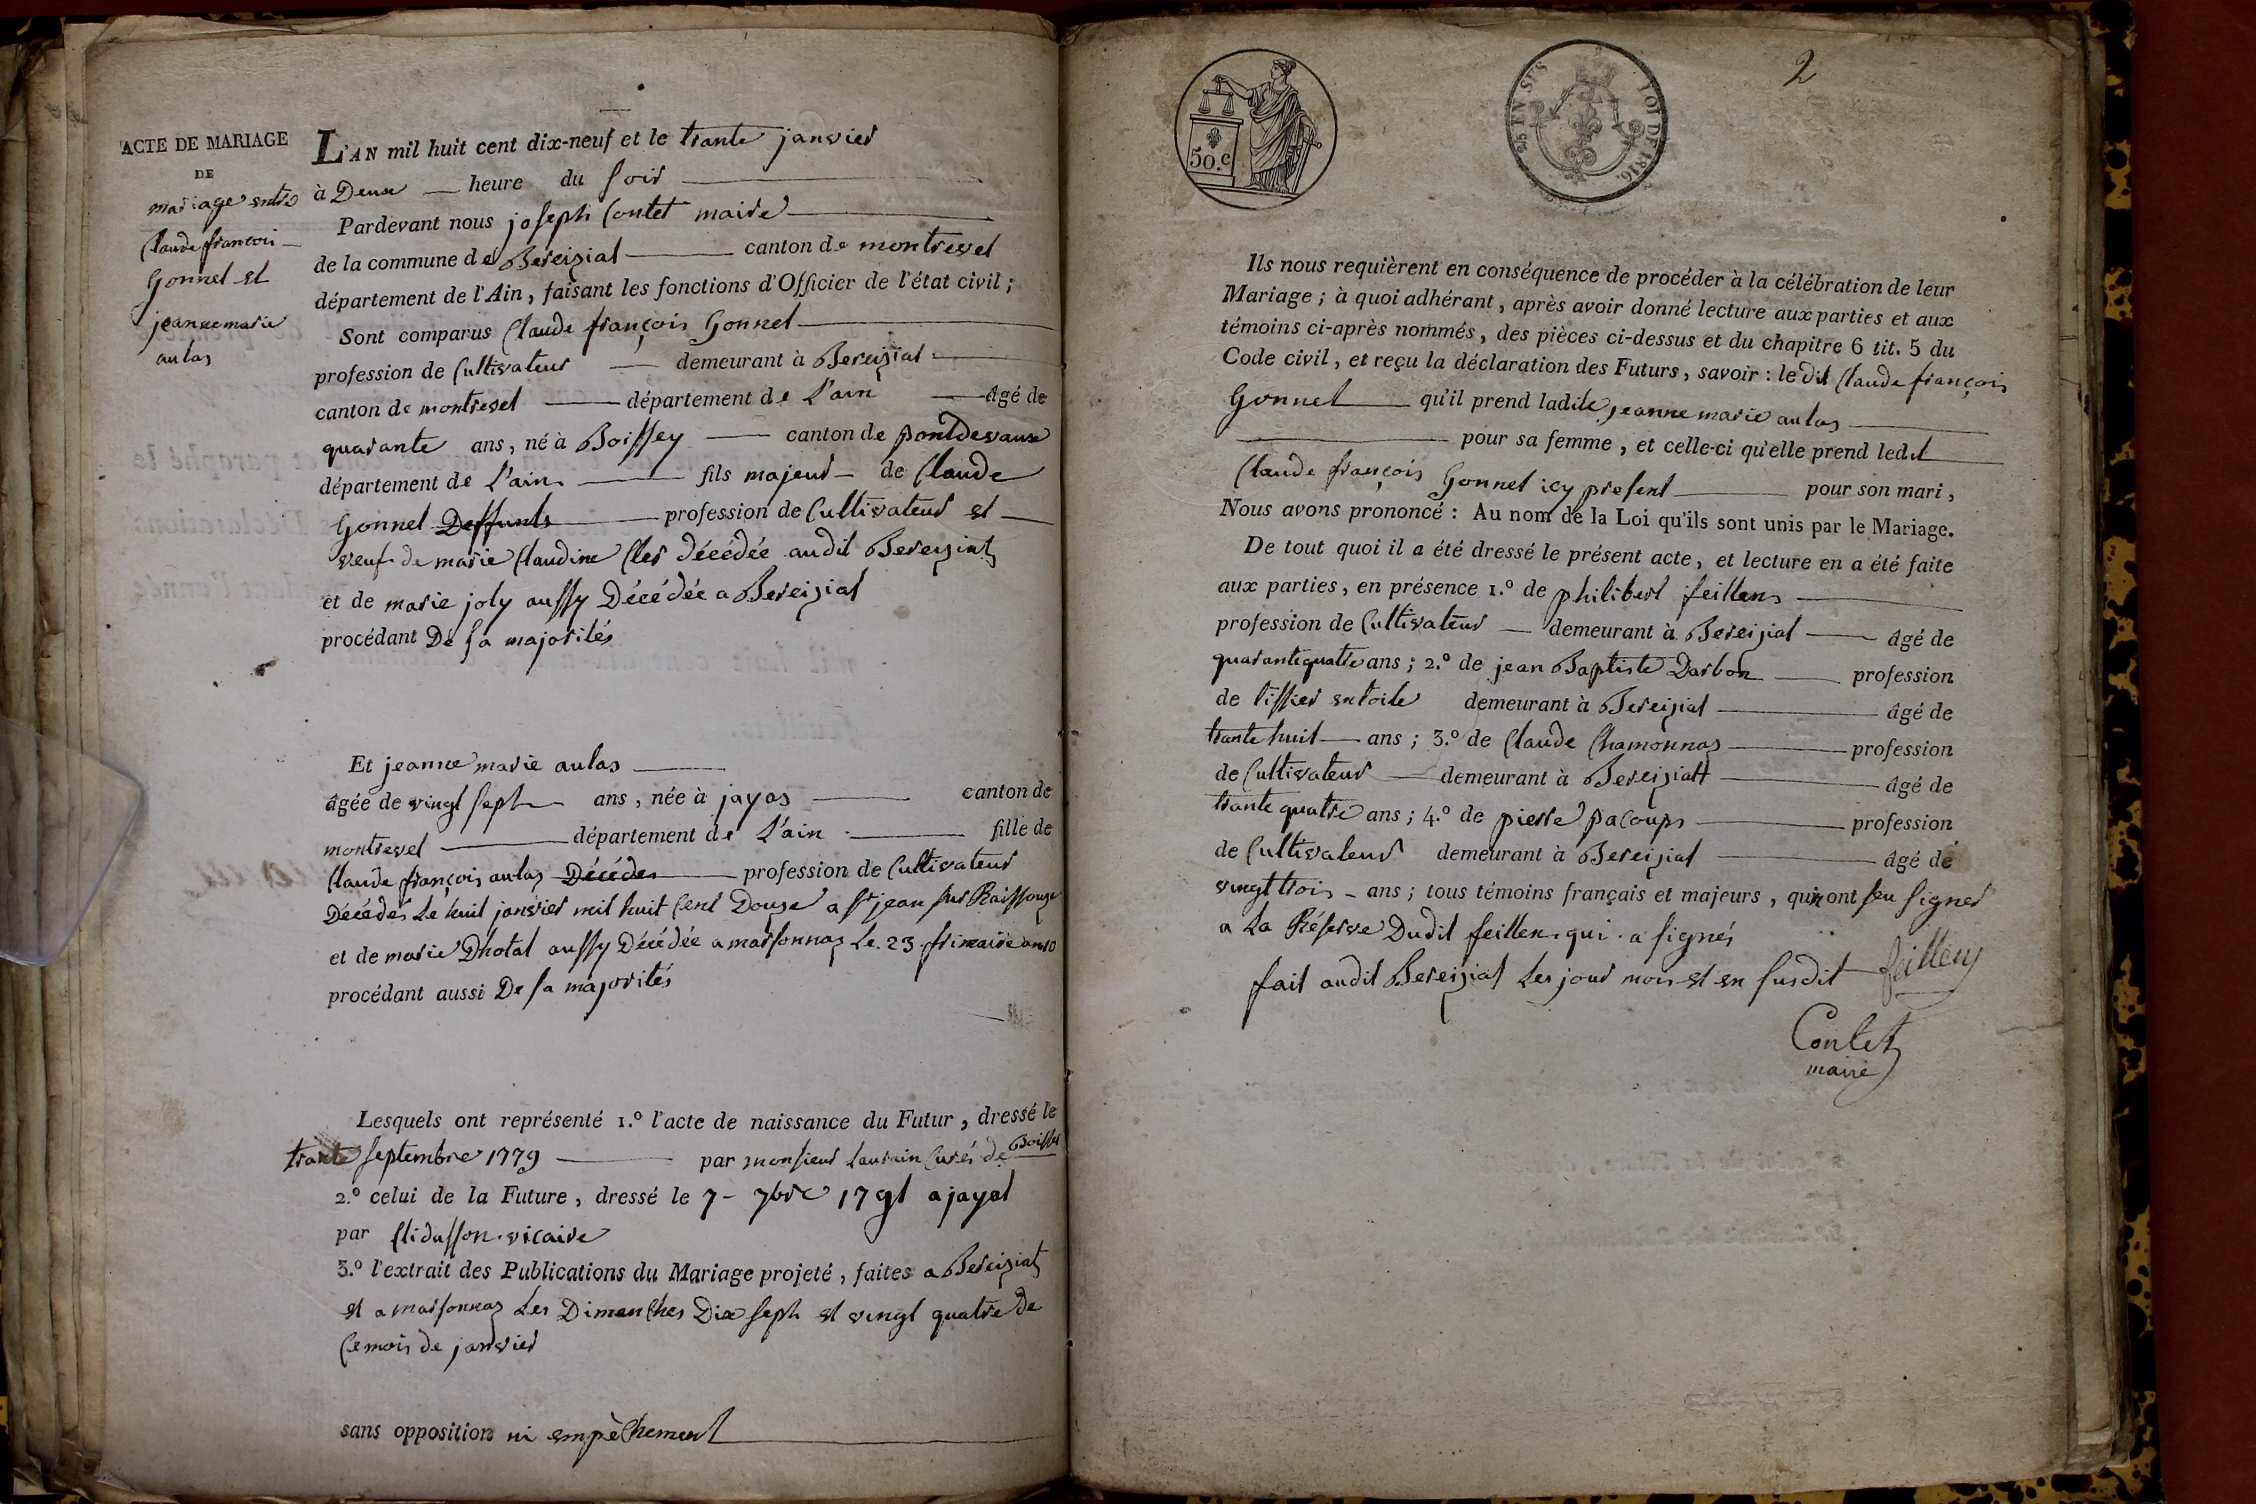 ACTE DE MARIAGE
DE
mariage entre
Claude françoi
Gonnet et
jeanne marie
aulas
L'AN mil huit cent dix-neuf et le trante janvier
à Deux heure du soir
Pardevant nous joseph Contet maire
de la commune de Bereiziat canton de montrevel
département de l'Ain, faisant les fonctions d'Officier de l'état civil;
Sont comparus Claude françois Gonnet
profession de Cultivateur demeurant à Bereiziat
canton de montrevel département de L'ain âgé de
quarante ans, né à Boissey canton de pontdevaux
département de L'ain fils majeur de Claude
Gonnet Deffunts profession de Cultivateur et
veuf de marie Claudine Cler décédée audit Bereziat
et de marie joly aussy Décédée a Bereiziat
procédant De sa majorités
Et jeanne marie aulas
âgée de vingt sept ans, née à jayas canton de
montrevel département de L'ain fille de
Claude françois aulas Décédes profession de Cultivateur
Décédés Le huit janvier mil huit Cent Douze a St jean sur Raissouze
et de marie Dhotal aussy Décédée a marsonnas Le 23 frimaire an 10
procédant aussi De sa majorités
Lesquels ont représenté 1.º l'acte de naissance du Futur, dressé le
trante septembre 1779 par monsieur Laurain Curés de Boisse
2.º celui de la Future, dressé le 7 - 7bre 1791 a jayat
par vicaire
3.º l'extrait des Publications du Mariage projeté, faites a Bereiziat
et a marsonnas Les Dimenches Dix sept et vingt quatre de
Ce mois de janvier
sans opposition ni empêchement
50.c
LOI DE 1816.
2
Ils nous requièrent en conséquence de procéder à la célébration de leur
Mariage; à quoi adhérant, après avoir donné lecture aux parties et aux
témoins ci-après nommés, des pièces ci-dessus et du chapitre 6 tit. 5 du
Code civil, et reçu la déclaration des Futurs, savoir: le dit Claude françois
Gonnet qu'il prend ladite jeanne marie aulas
pour sa femme, et celle-ci qu'elle prend ledit
Claude françois Gonnet icy present pour son mari,
Nous avons prononcé: Au nom de la Loi qu'ils sont unis par le Mariage.
De tout quoi il a été dressé le présent acte, et lecture en a été faite
aux parties, en présence 1.º de philibert feillens
profession de Cultivateur demeurant à Bereiziat âgé de
quarantequatre ans; 2.º de jean Baptiste Darbon profession
de tissier en toile demeurant à Bereiziat âgé de
trante huit ans; 3.º de Claude Chamonnas profession
de Cultivateur demeurant à Bereiziatt âgé de
trante quatre ans; 4.º de pierre pacoups profession
de Cultivateur demeurant à Bereiziat âgé de
vingttrois ans; tous témoins français et majeurs, qui n'ont seu signer
a La Réserve Dudit feillens qui a signés
fait audit Bereiziat Les jour mois et en susdit feillens
Contet
maire